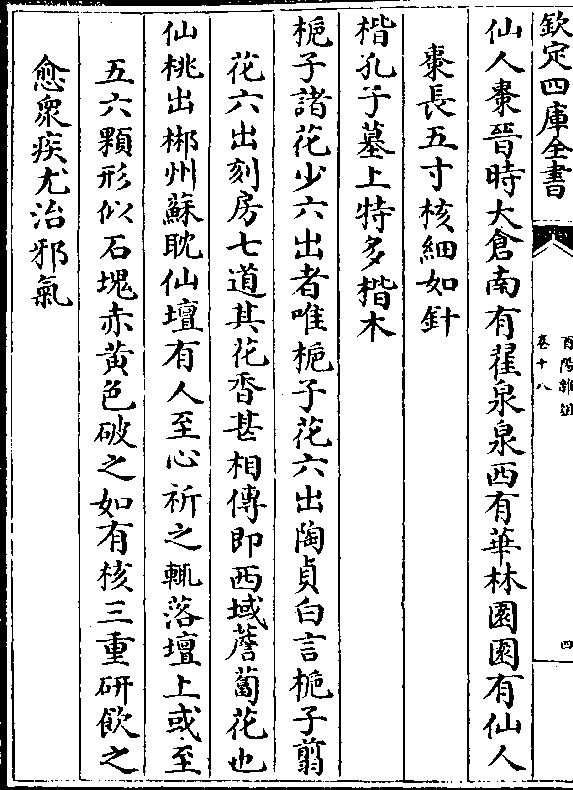 欽定四庫全書
酉陽雜俎
卷十八
四
仙人棗晉時大倉南有翟泉泉西有華林園園有仙人
棗長五寸核細如針
楷孔子墓上特多楷木
梔子諸花少六出者唯梔子花六出陶貞白言梔子翦
花六出刻房七道其花香甚相傳即西域薝蔔花也
仙桃出郴州蘇耽仙壇有人至心祈之輒落壇上或至
五六顆形似石塊赤黄色破之如有核三重研飲之
愈衆疾尤治邪氣